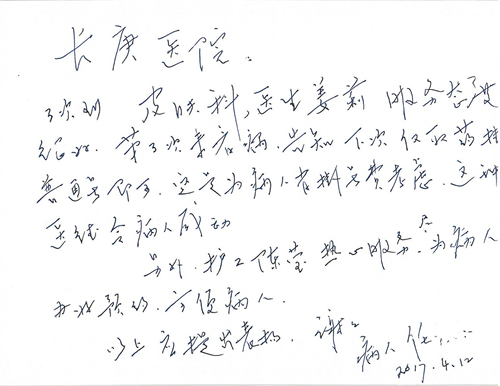 长庚医院:
3次到 皮肤科,医生姜莉 服务态度
绝好. 第3次来看病.告知下次仅取药挂
普通号即可.这是为病人省掛号费考虑.这种
医德令病人感动
另外.护工陈莹热心服务.为病人
办好预约.方便病人.
以上应提出表扬. 谢谢
病人
2017.4.12